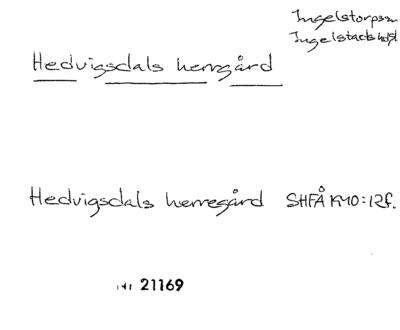 Ingelstorps sn
Ingelstads hd
Hedvigsdals herrgård
Hedvigsdals herregård SHFÅ 1910:12f.
21169